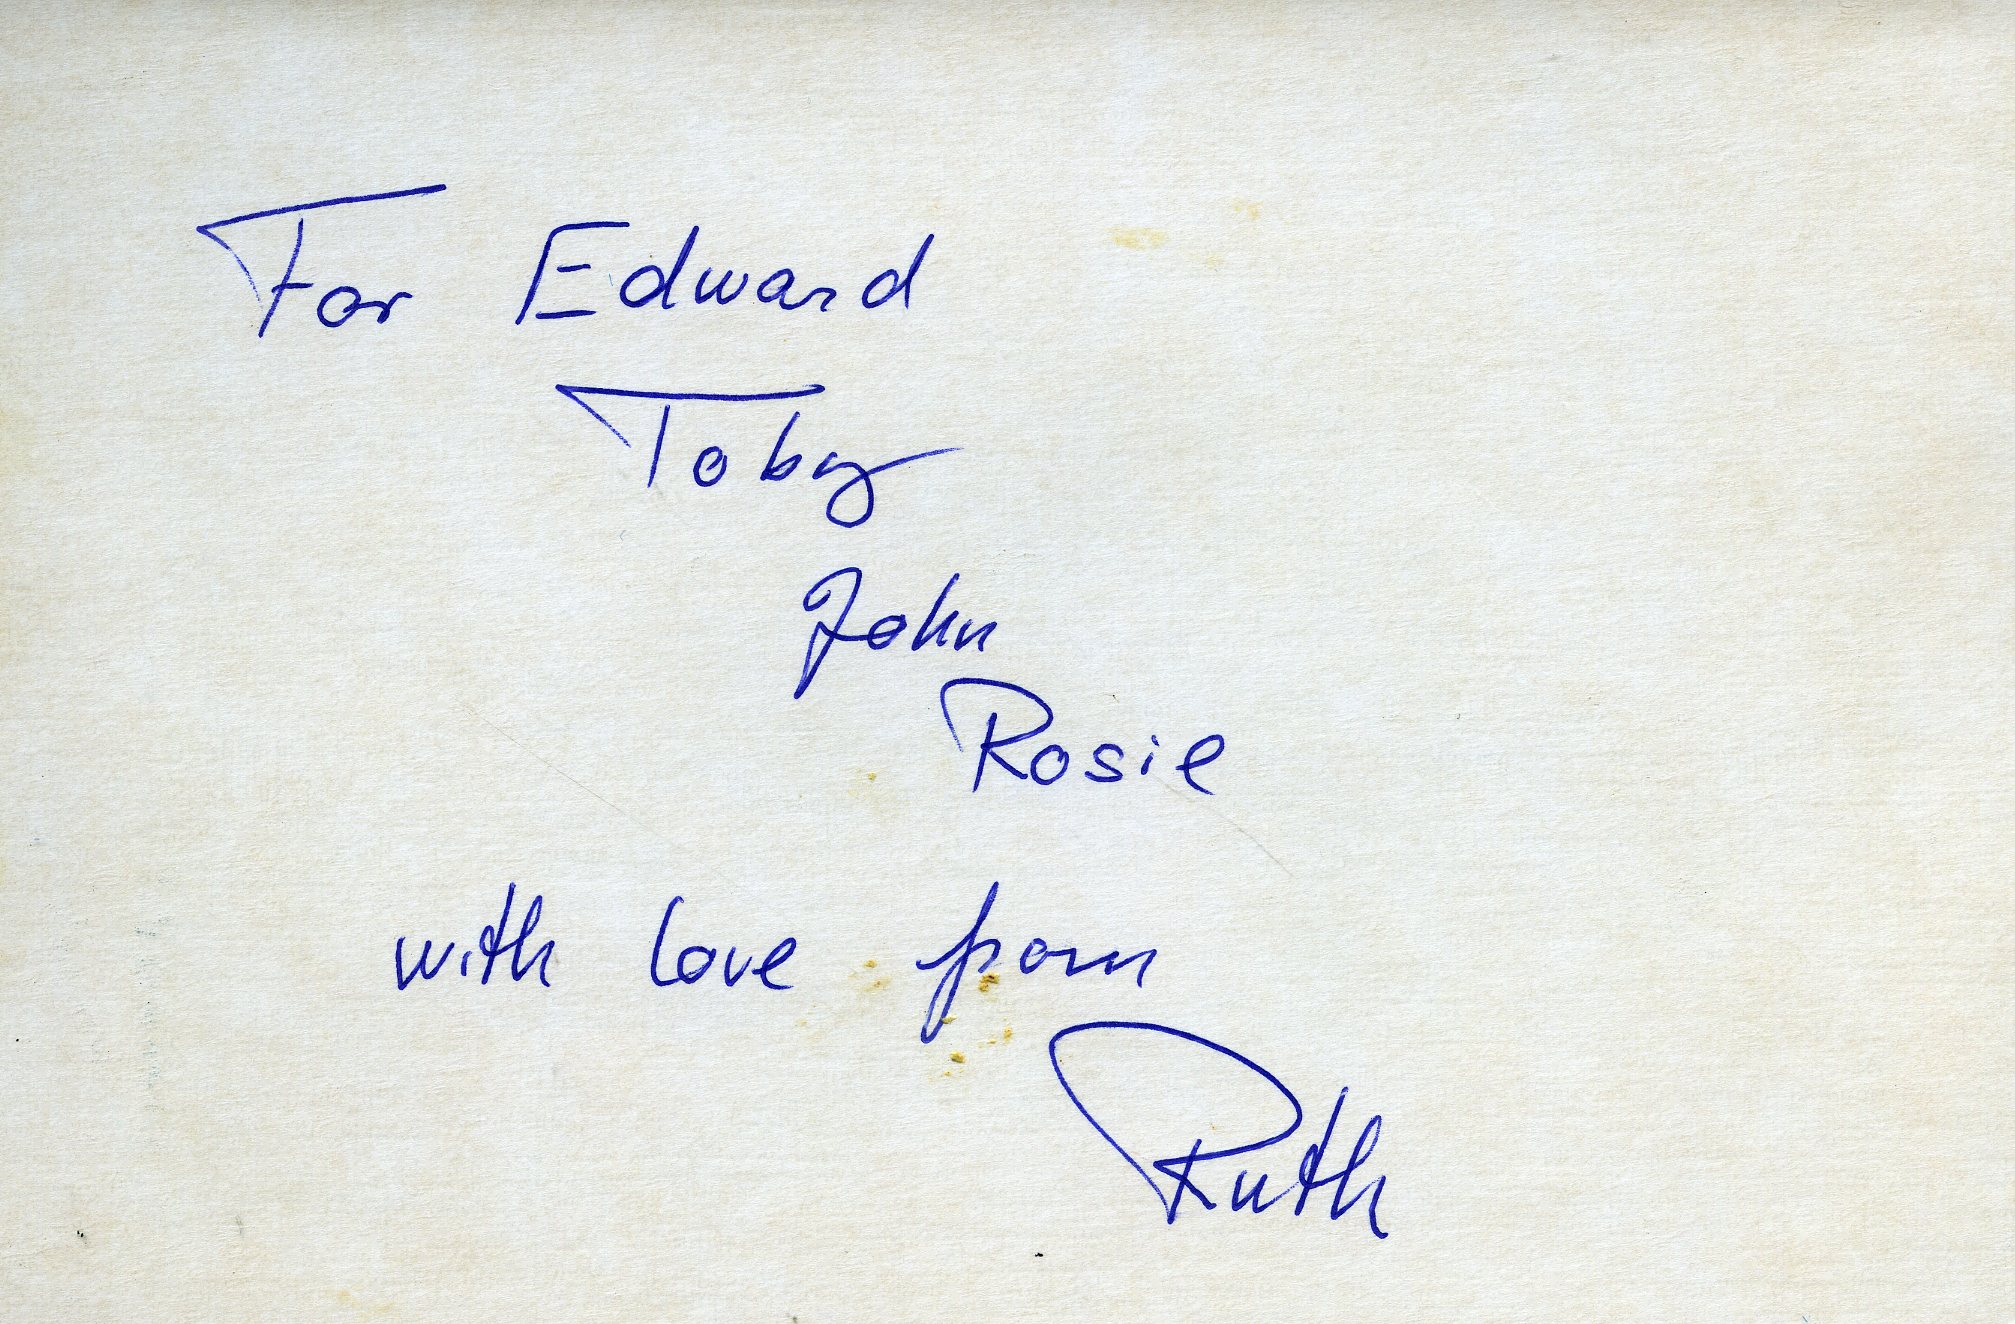 For Edward
Toby
John
Rosie
with love from
Ruth